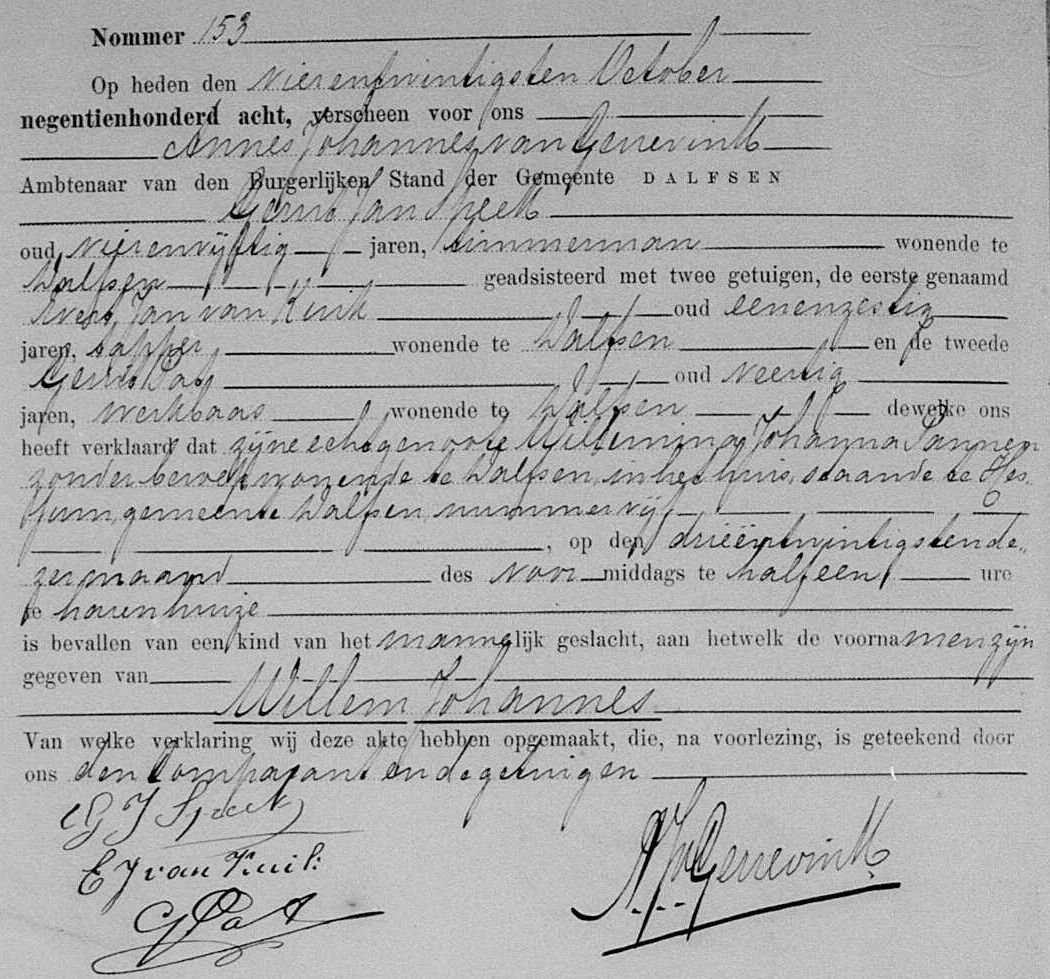 Nommer 153
Op heden den vierentwintigsten October
negentienhonderd acht, verscheen voor ons
Annes Johannes van Gerrevink
Ambtenaar van den Burgerlijken Stand der Gemeente DALFSEN
Gerrit Jan Speek
oud vierenvijftig jaren, timmerman wonende te
Dalfsen geadsisteerd met twee getuigen, de eerste genaamd
Evert Jan van Kuik oud eenenzestig
jaren, tapper wonende te Dalfsen en de tweede
Gerrit oud veertig
jaren, werkbaas wonende te Dalfsen dewelke ons
heeft verklaard dat zijne echtgenoote Willemina Johanna
zonder beroep wonende te Dalfsen, in het huis, staande te Hes
sum, gemeente Dalfsen, nummer vijf
, op den drieëntwintigsten de„
zer maand des voor middags te half een, ure
te haren huize
is bevallen van een kind van het mannelijk geslacht, aan hetwelk de voornamen zijn
gegeven van
Willem Johannes
Van welke verklaring wij deze akte hebben opgemaakt, die, na voorlezing, is geteekend door
ons den Comparant en de getuigen
G J Speek
E J van Kuik
AJvGerrevink